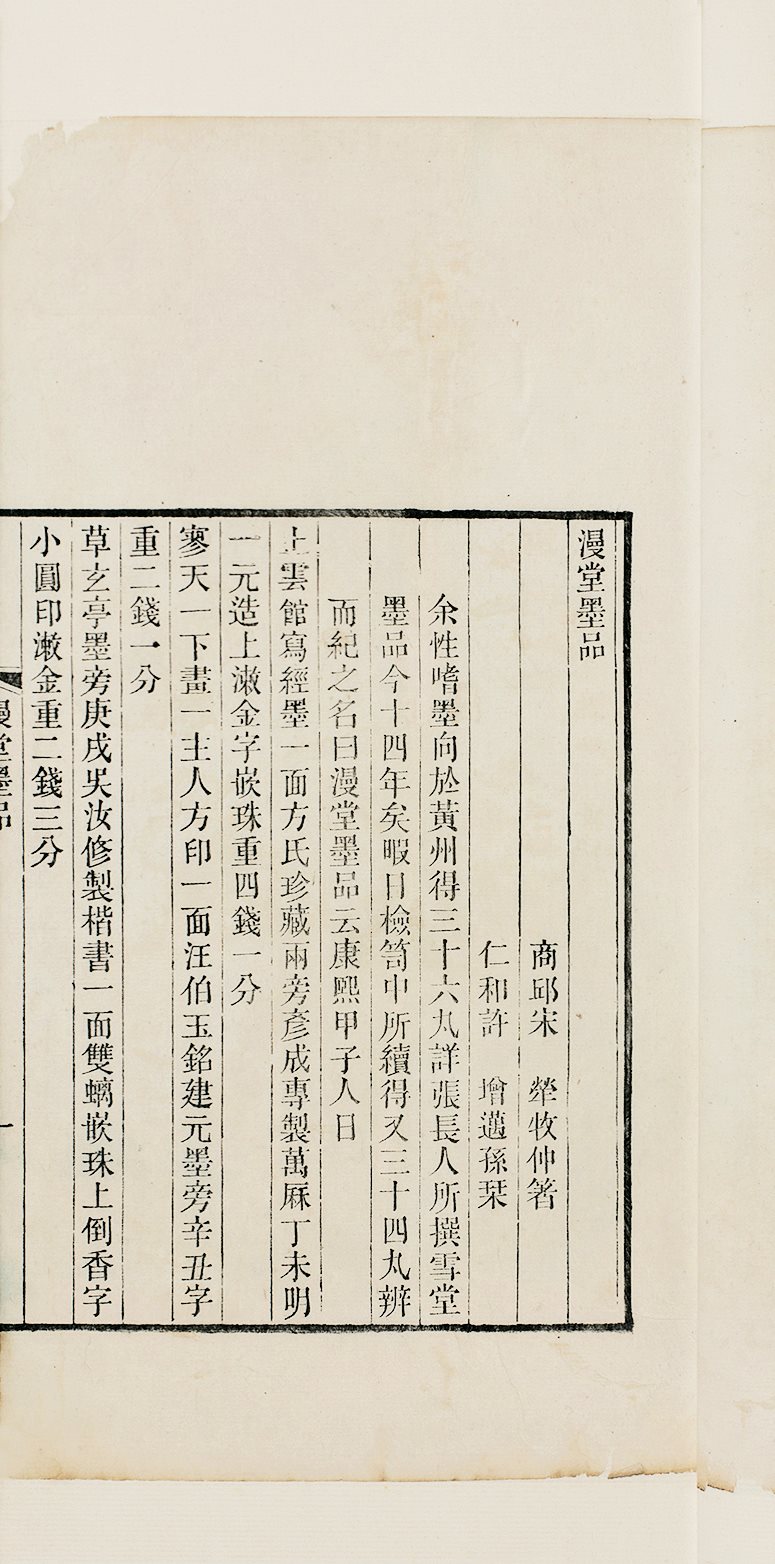 漫堂墨品
商邱宋　犖牧仲著
仁和許　增邁孫栞
余性嗜墨向於黃州得三十六丸詳張長人所撰雪堂
墨品今十四年矣暇日檢笥中所續得又三十四丸辨
而紀之名曰漫堂墨品云康熙甲子人日
止雲館寫經墨一面方氏珍藏兩旁彥成專製萬厤丁未明
一元造上漱金字嵌珠重四錢一分
寥天一下畫一主人方印一面汪伯玉銘建元墨旁辛丑字
重二錢一分
草玄亭墨旁庚戌吳汝修製楷書一面雙螭嵌珠上倒香字
小圓印漱金重二錢三分
漫堂墨品
一